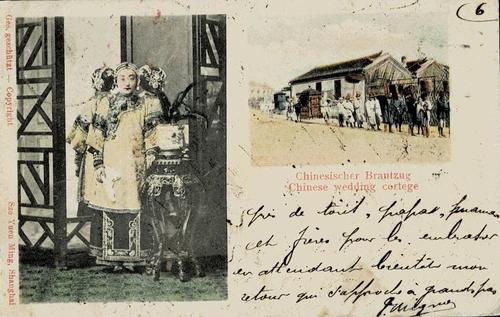 6
Ges. geschützt — Copyright
Sze Yuen Ming, Shanghai
Chinesischer Brautzug
Chinese wedding cortege
près de toit, papa, maman
et frères pour les embrasser
en attendant bientôt mon
retour qui s'approche à grands pas